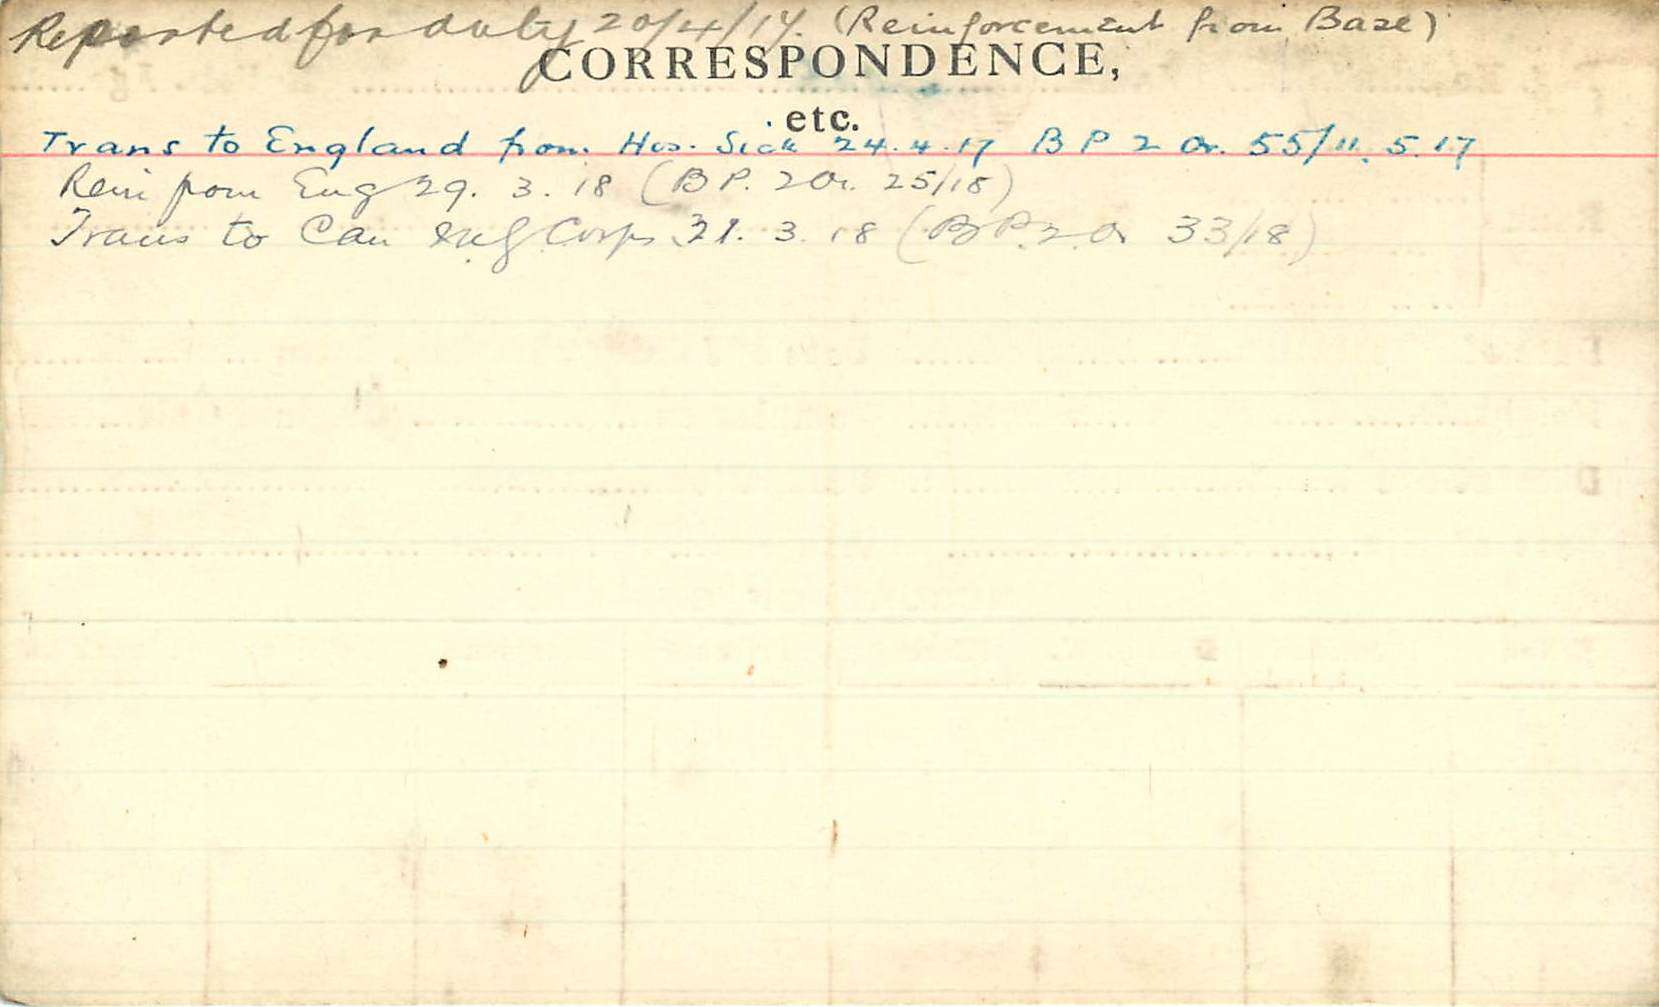 Reported for duty 20/4/17. (Reinforcement from Base)
CORRESPONDENCE,
etc.
Trans to England from Hos. Sick 24.4.17 B P 2 Or. 55/11.5.17
Rein from Eng 29.3.18 (B P. 2 Or. 25/18)
Trans to Can Corps 31.3.18 (B P. 2 Or 33/18)